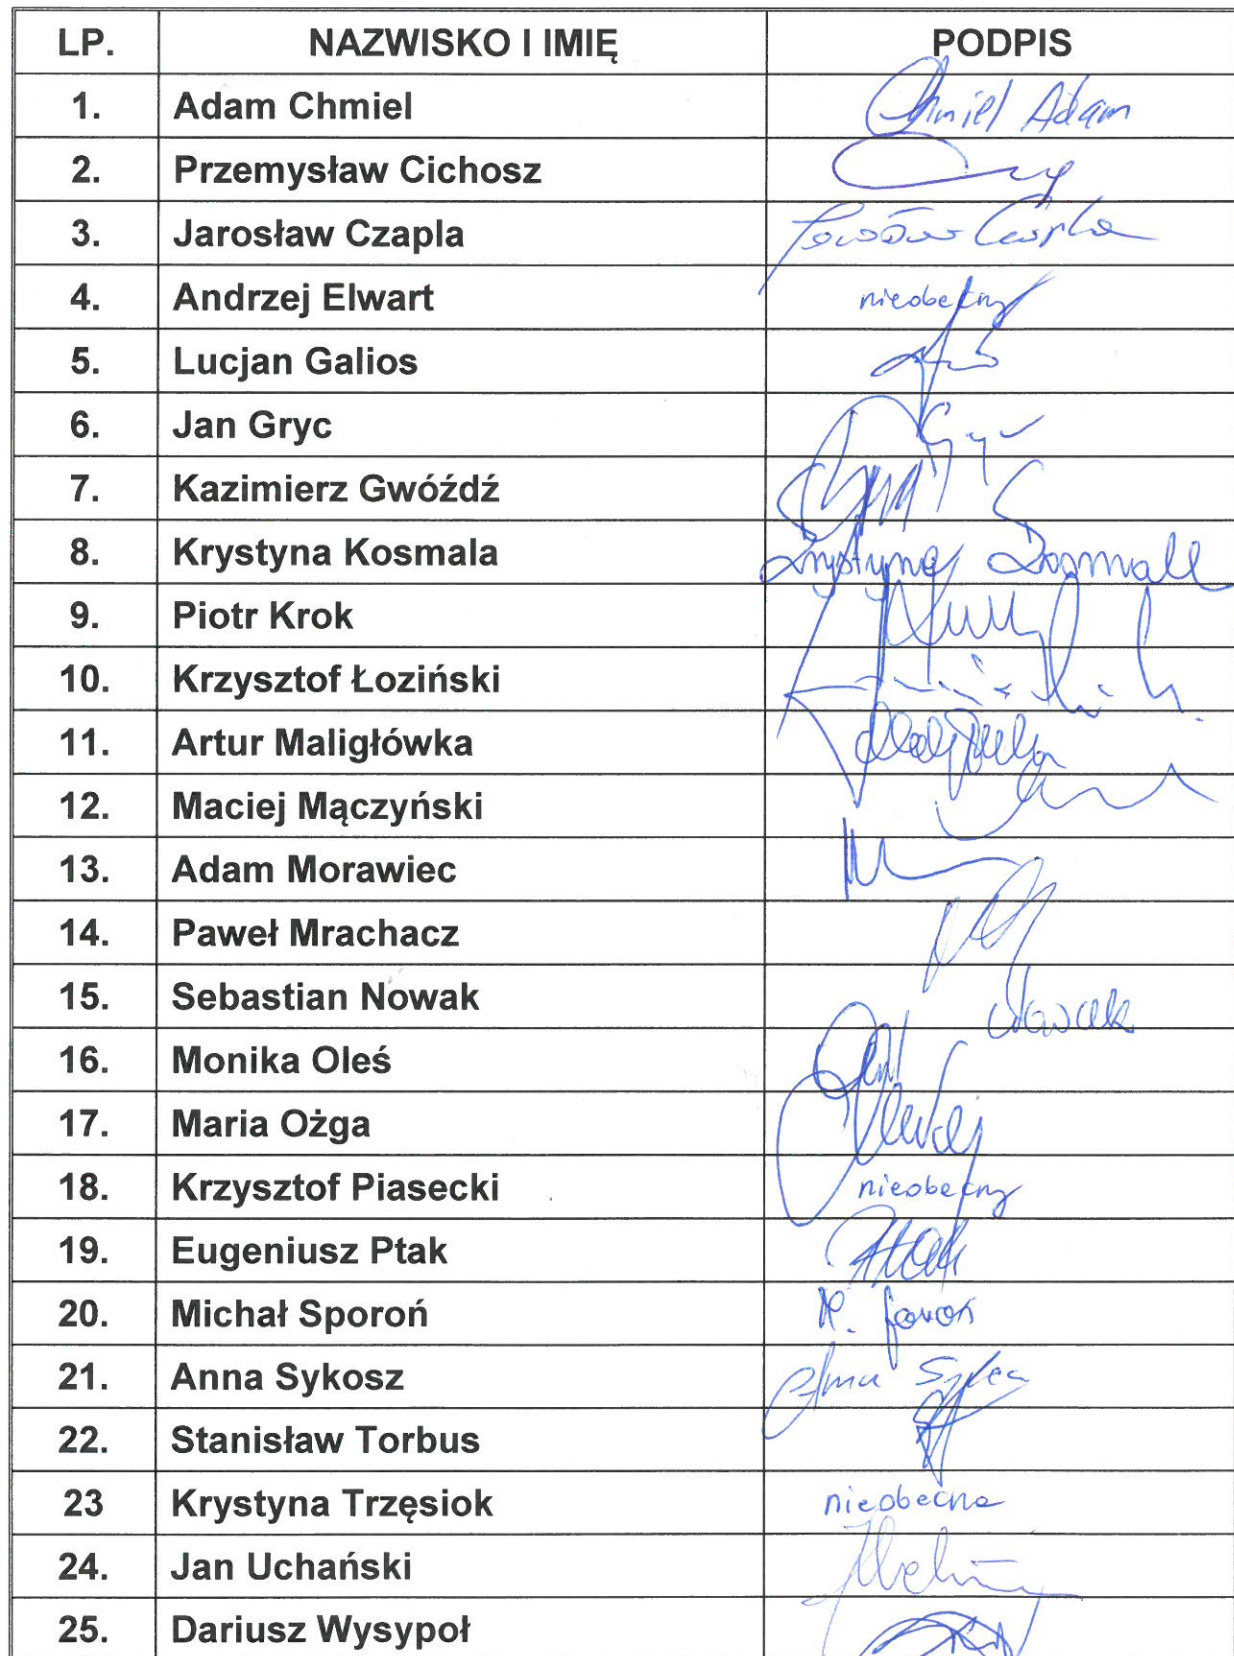 LP. NAZWISKO I IMIĘ PODPIS
1. Adam Chmiel Chmiel Adam
2. Przemysław Cichosz
3. Jarosław Czapla Jarosław Czapla
4. Andrzej Elwart nieobecny
5. Lucjan Galios
6. Jan Gryc
7. Kazimierz Gwóźdź
8. Krystyna Kosmala Krystyna Kosmala
9. Piotr Krok
10. Krzysztof Łoziński
11. Artur Maligłówka
12. Maciej Mączyński
13. Adam Morawiec
14. Paweł Mrachacz
15. Sebastian Nowak Nowak
16. Monika Oleś
17. Maria Ożga
18. Krzysztof Piasecki nieobecny
19. Eugeniusz Ptak Ptak
20. Michał Sporoń M. Sporoń
21. Anna Sykosz Anna
22. Stanisław Torbus
23 Krystyna Trzęsiok nieobecna
24. Jan Uchański
25. Dariusz Wysypoł